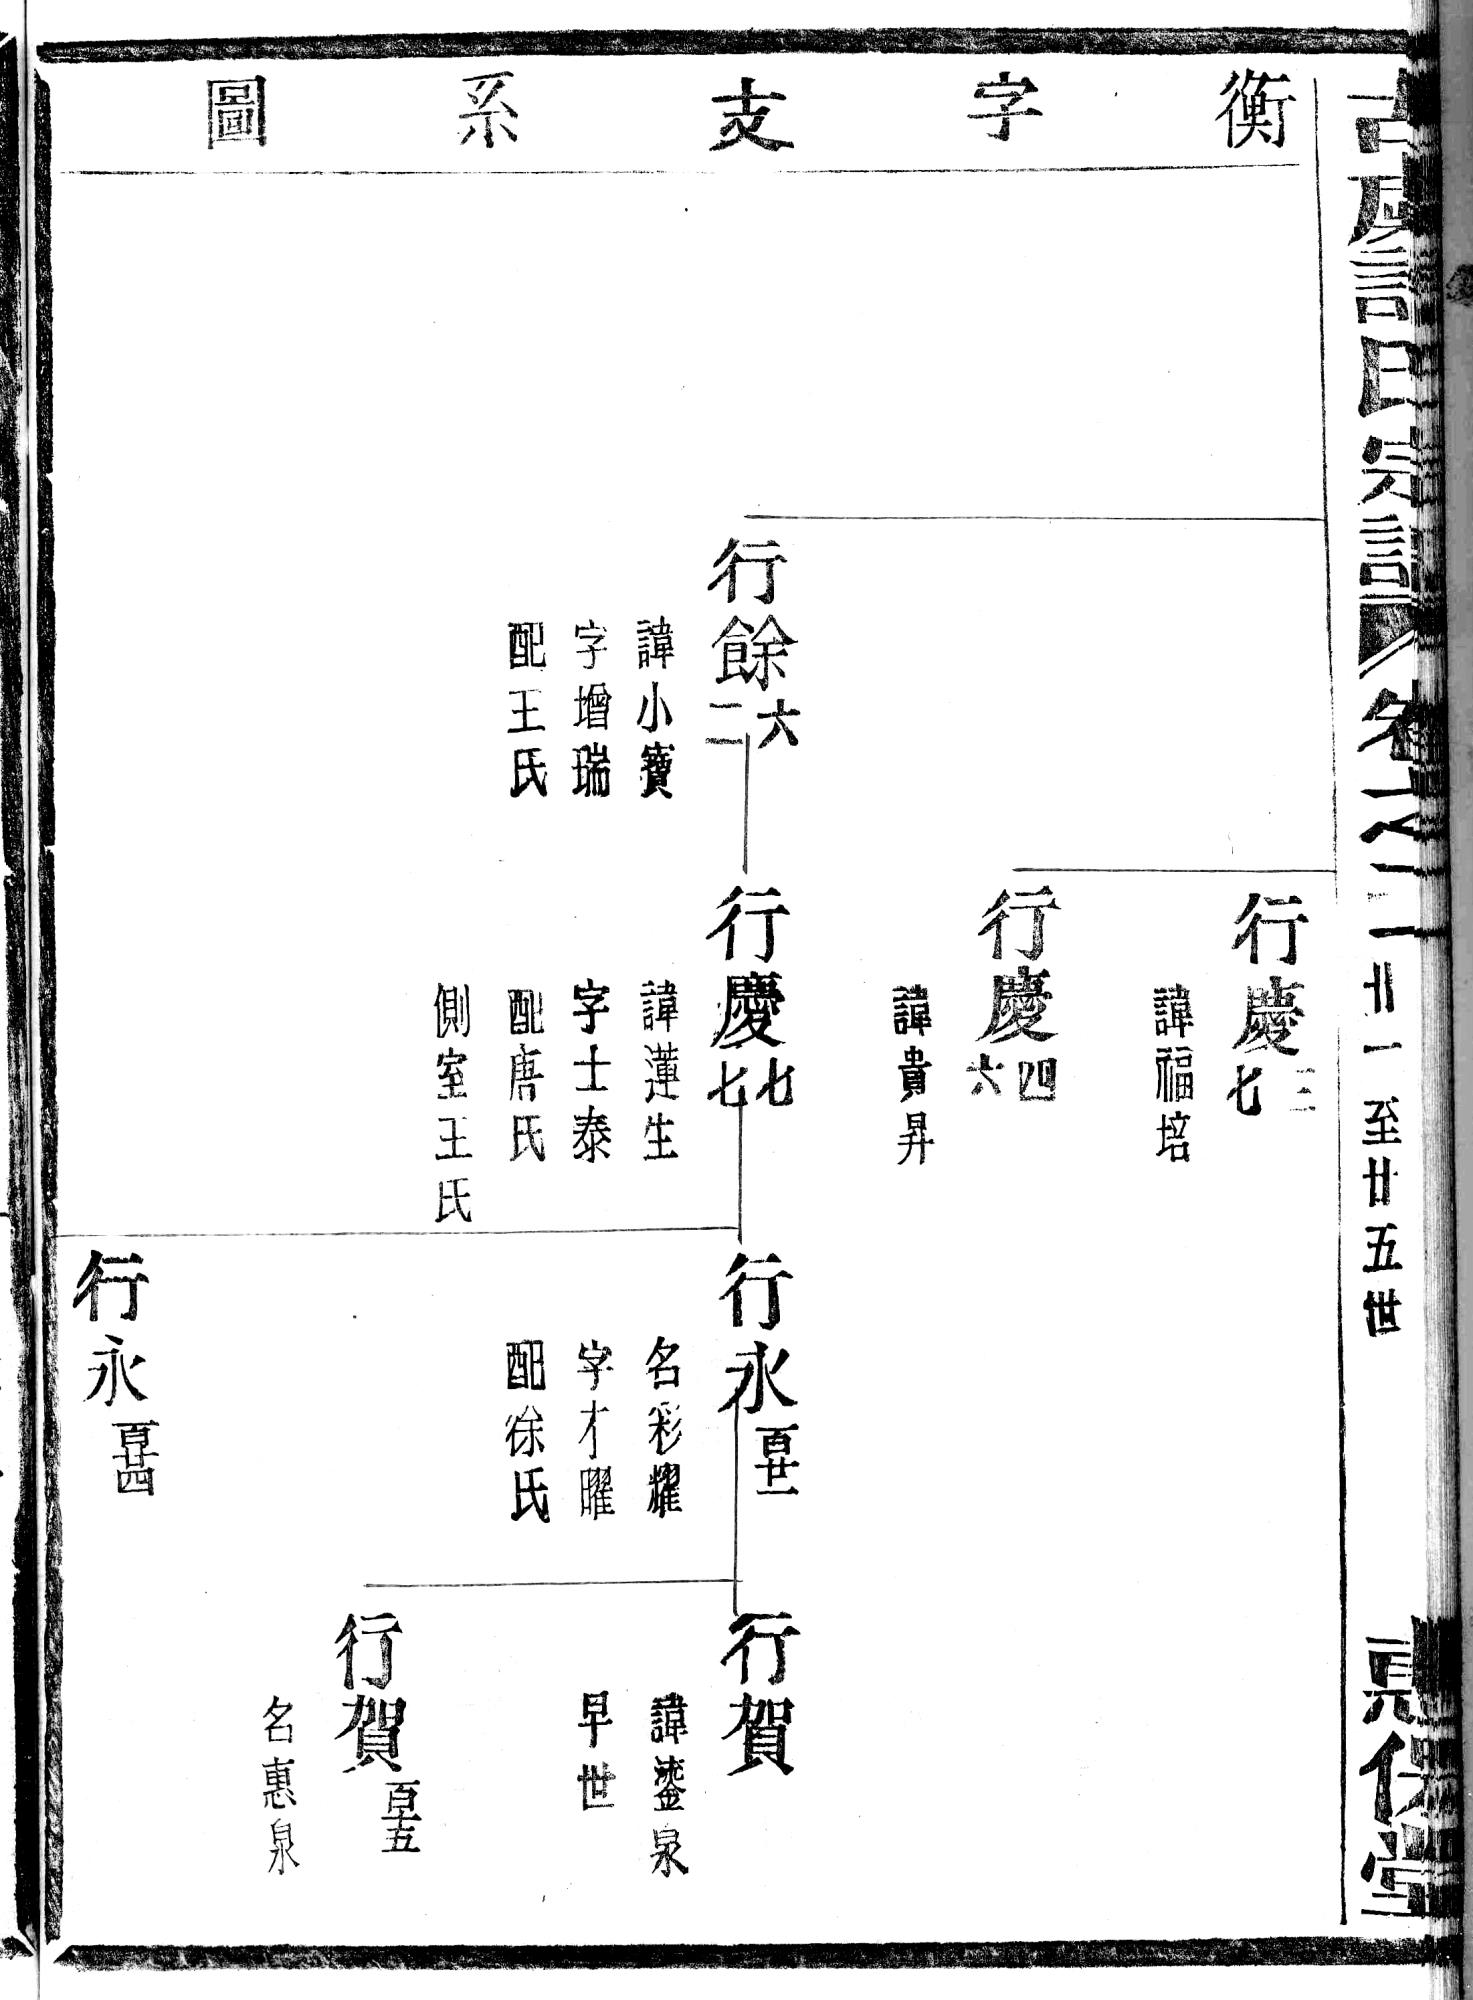 衡字支系圖
卷之二
廿一至廿五世
行餘六二
諱小寶
字增瑞
配王氏
行慶三七
諱福培
行慶四六
諱貴昇
行慶七七
諱蓮生
字士泰
配唐氏
側室王氏
行永百廿一
名彩耀
字才曜
配徐氏
行永百廿四
行賀
諱鎏泉
早世
行賀百十五
名惠泉